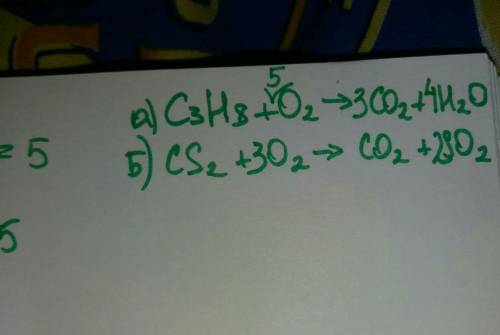 а) C₃H₈ + 5O₂ → 3CO₂ + 4H₂O
= 5
Б) CS₂ + 3O₂ → CO₂ + 2SO₂
5